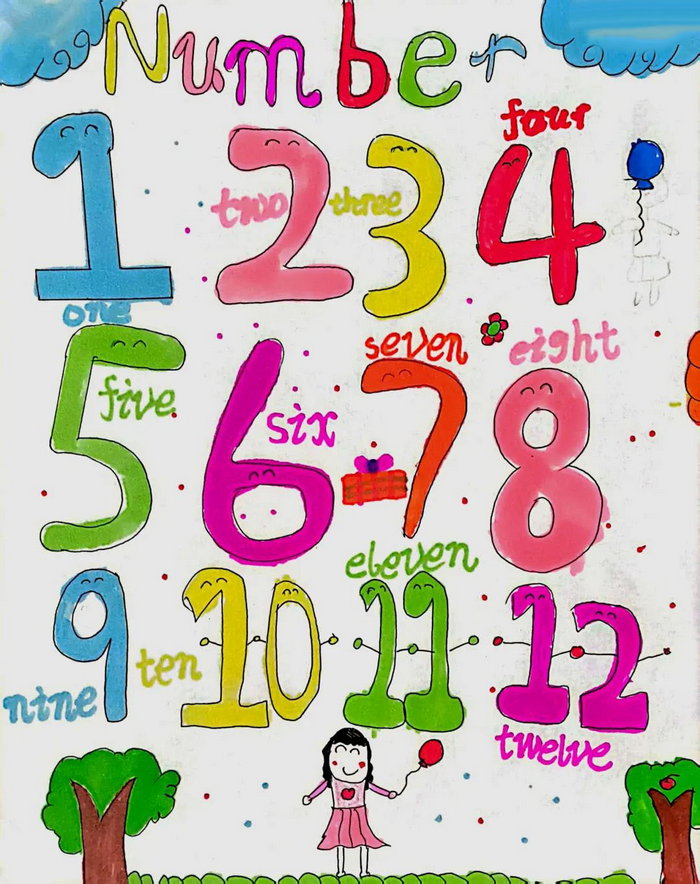 Number
four
1 two 2 three 3 4
one
seven eight
5 five 6 six 7 8
eleven
9 ten 10 11 12
nine
twelve